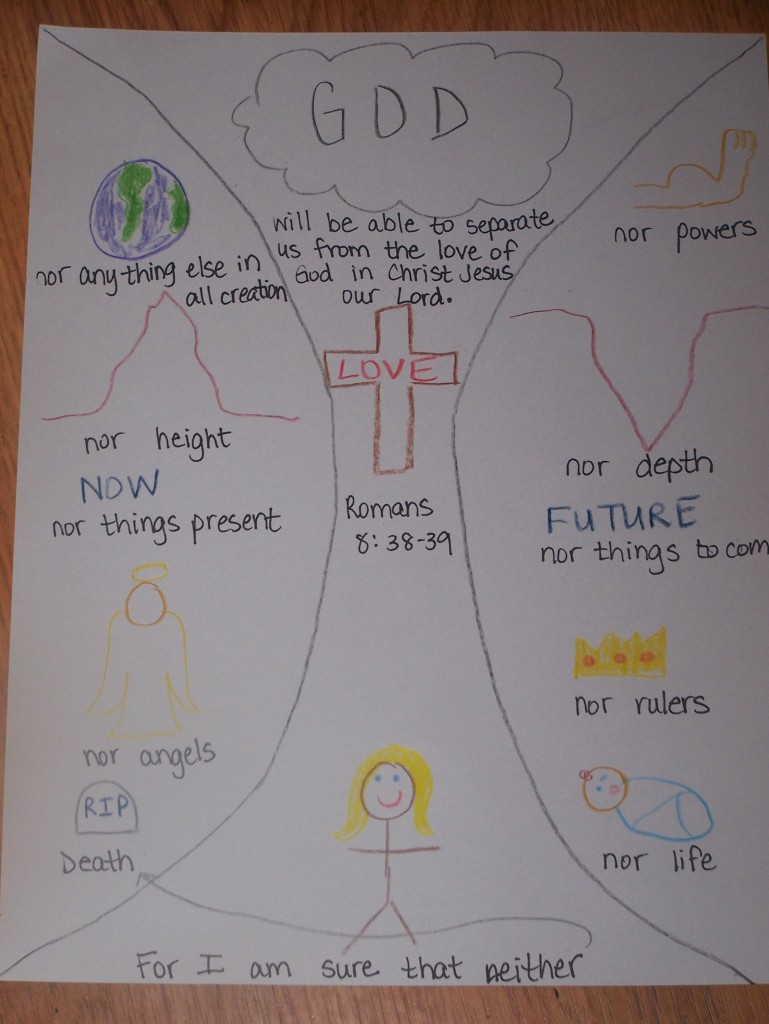 GOD
will be able to separate
us from the love of
God in Christ Jesus
our Lord.
nor anything else in
all creation
nor powers
LOVE
nor height
nor depth
NOW
nor things present
Romans
8:38-39
FUTURE
nor things to com
nor angels
nor rulers
RIP
Death
nor life
For I am sure that neither